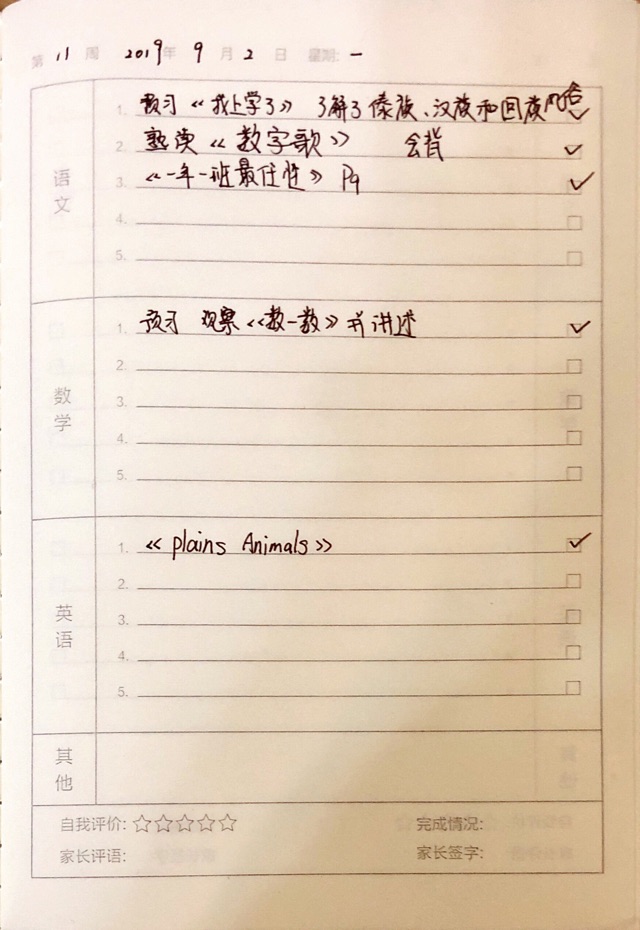 第 11 周 2019年 9 月 2 日 星期: 一
语文
1. 预习《我上学了》 了解了傣族、汉族和回族风俗
2. 熟读《数字歌》 会背
3. 《一年一班最任性》 P9
4.
5.
数学
1. 预习 观察《数一数》并讲述
2.
3.
4.
5.
英语
1. 《Plains Animals》
2.
3.
4.
5.
其他
自我评价: ☆☆☆☆☆ 完成情况:
家长评语: 家长签字: